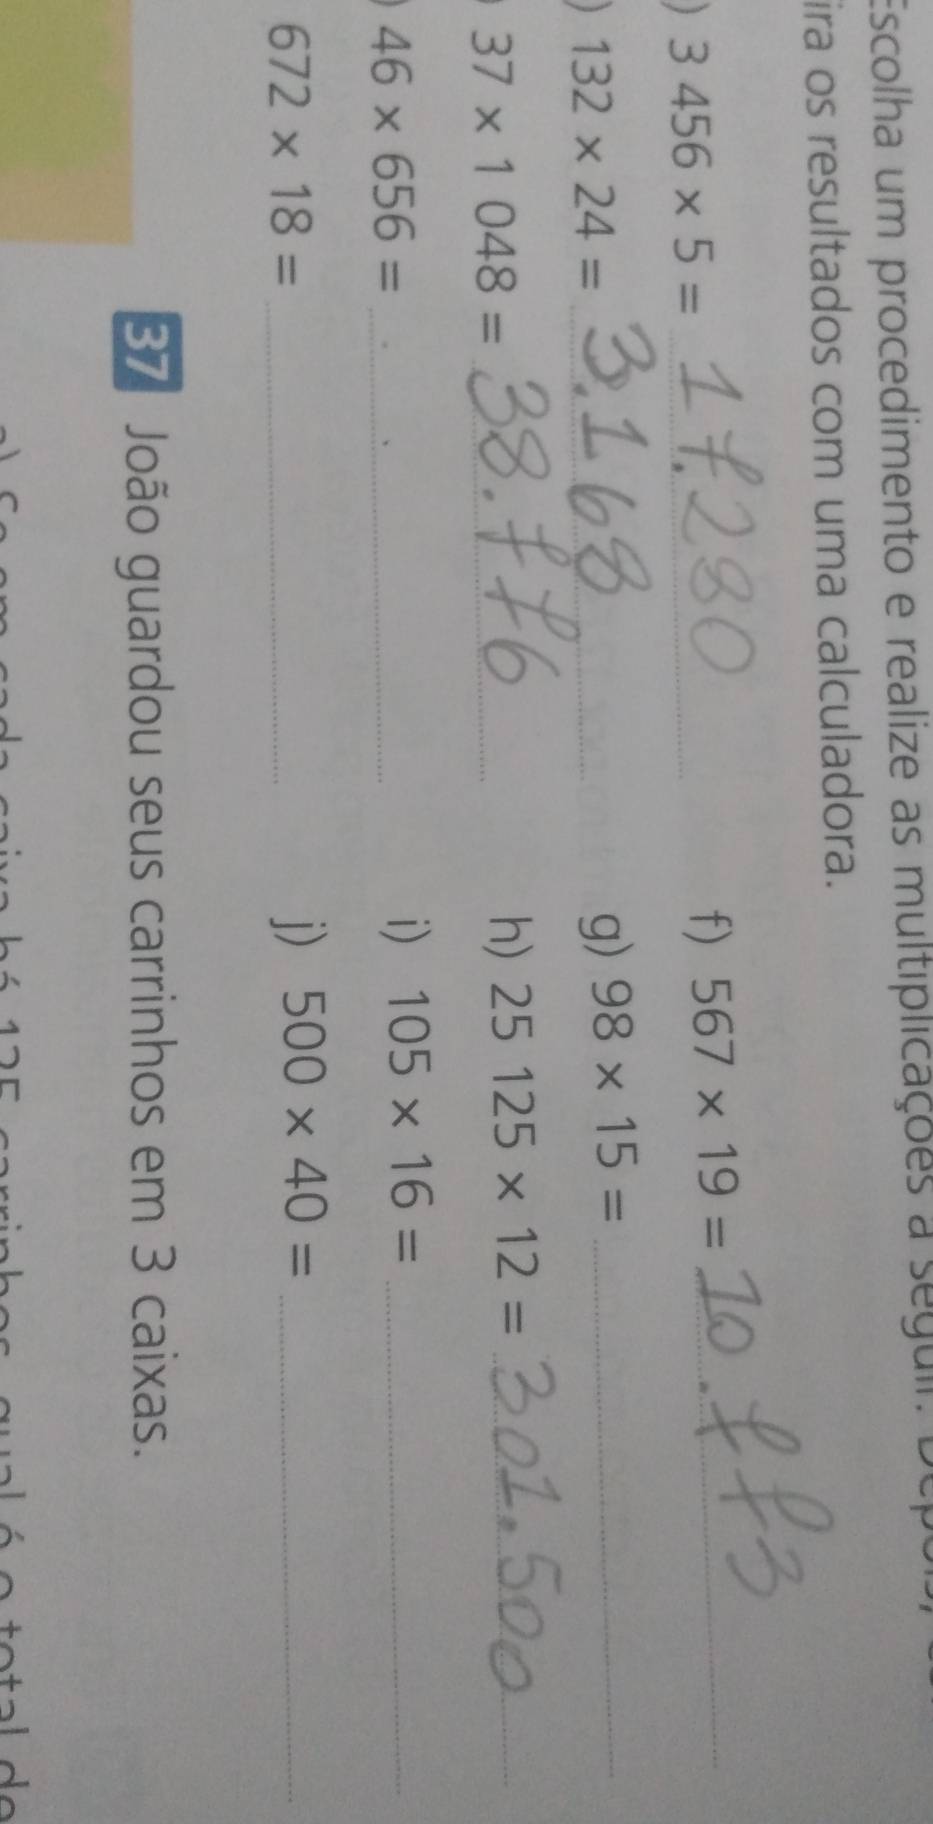 Escolha um procedimento e realize as multiplicações a seguir. Depois,
ira os resultados com uma calculadora.
) 3 456 × 5 = 17.280
) 132 × 24 = 3.168
) 37 × 1 048 = 38.776
) 46 × 656 =
672 × 18 =
f) 567 × 19 = 10.773
g) 98 × 15 =
h) 25 125 × 12 = 301.500
i) 105 × 16 =
j) 500 × 40 =
37 João guardou seus carrinhos em 3 caixas.
a) Se em cada caixa há 125 carrinhos, qual é o total de